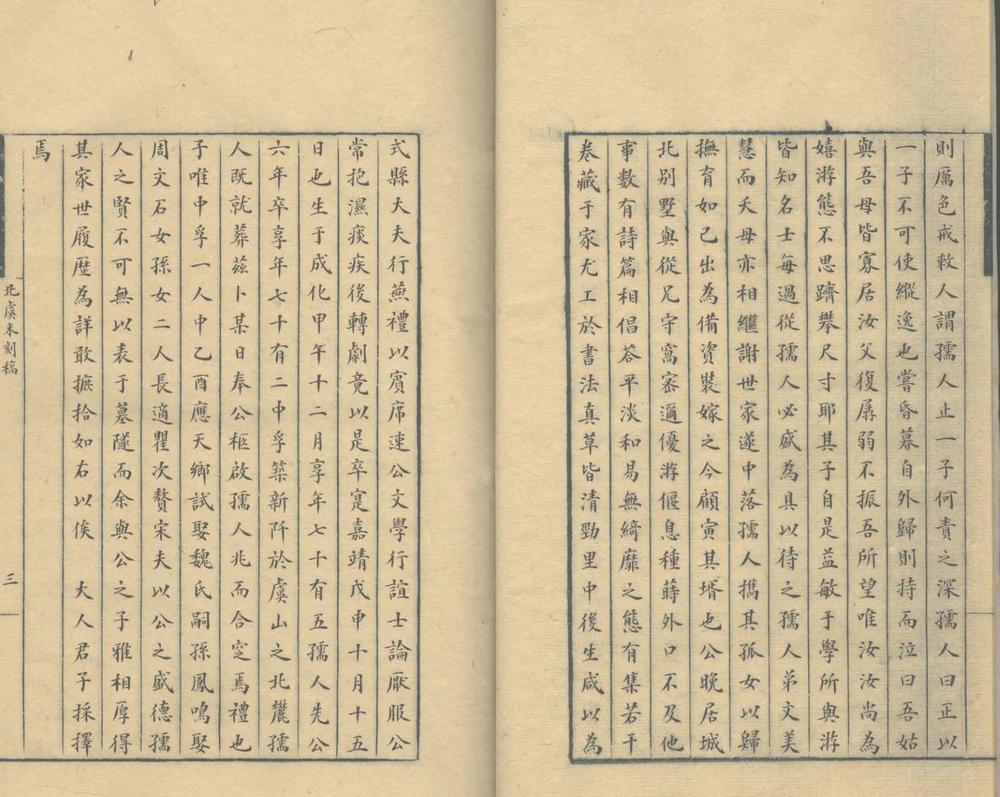 則厲色戒敕人謂孺人止一子何責之深孺人曰正以
一子不可使縱逸也嘗昏暮自外歸則持而泣曰吾姑
與吾母皆寡居汝父復孱弱不振吾所望唯汝汝尚為
嬉游態不思躋攀尺寸耶其子自是益敏于學所與游
皆知名士每過從孺人必盛為具以待之孺人弟文美
慧而夭母亦相繼謝世家遂中落孺人攜其孤女以歸
撫育如己出為備資裝嫁之今顧寅其壻也公晚居城
北别墅與從兄守寓寀邇優游偃息種蒔外口不及他
事數有詩篇相倡荅平淡和易無綺靡之態有集若干
卷藏于家尤工於書法真草皆清勁里中後生咸以為
式縣大夫行燕禮以賓席速公文學行誼士論厭服公
常抱濕痰疾後轉劇竟以是卒寔嘉靖戊申十月十五
日也生于成化甲午十二月享年七十有五孺人先公
六年卒享年七十有二中孚築新阡於虞山之北麓孺
人既就葬茲卜某日奉公柩啟孺人兆而合窆焉禮也
子唯中孚一人中乙酉應天鄉試娶魏氏嗣孫鳳鳴娶
周文石女孫女二人長適瞿次贅宋夫以公之盛德孺
人之賢不可無以表于墓隧而余與公之子雅相厚得
其家世履歷為詳敢摭拾如右以俟　大人君子採擇
焉
北虞未刻稿
三